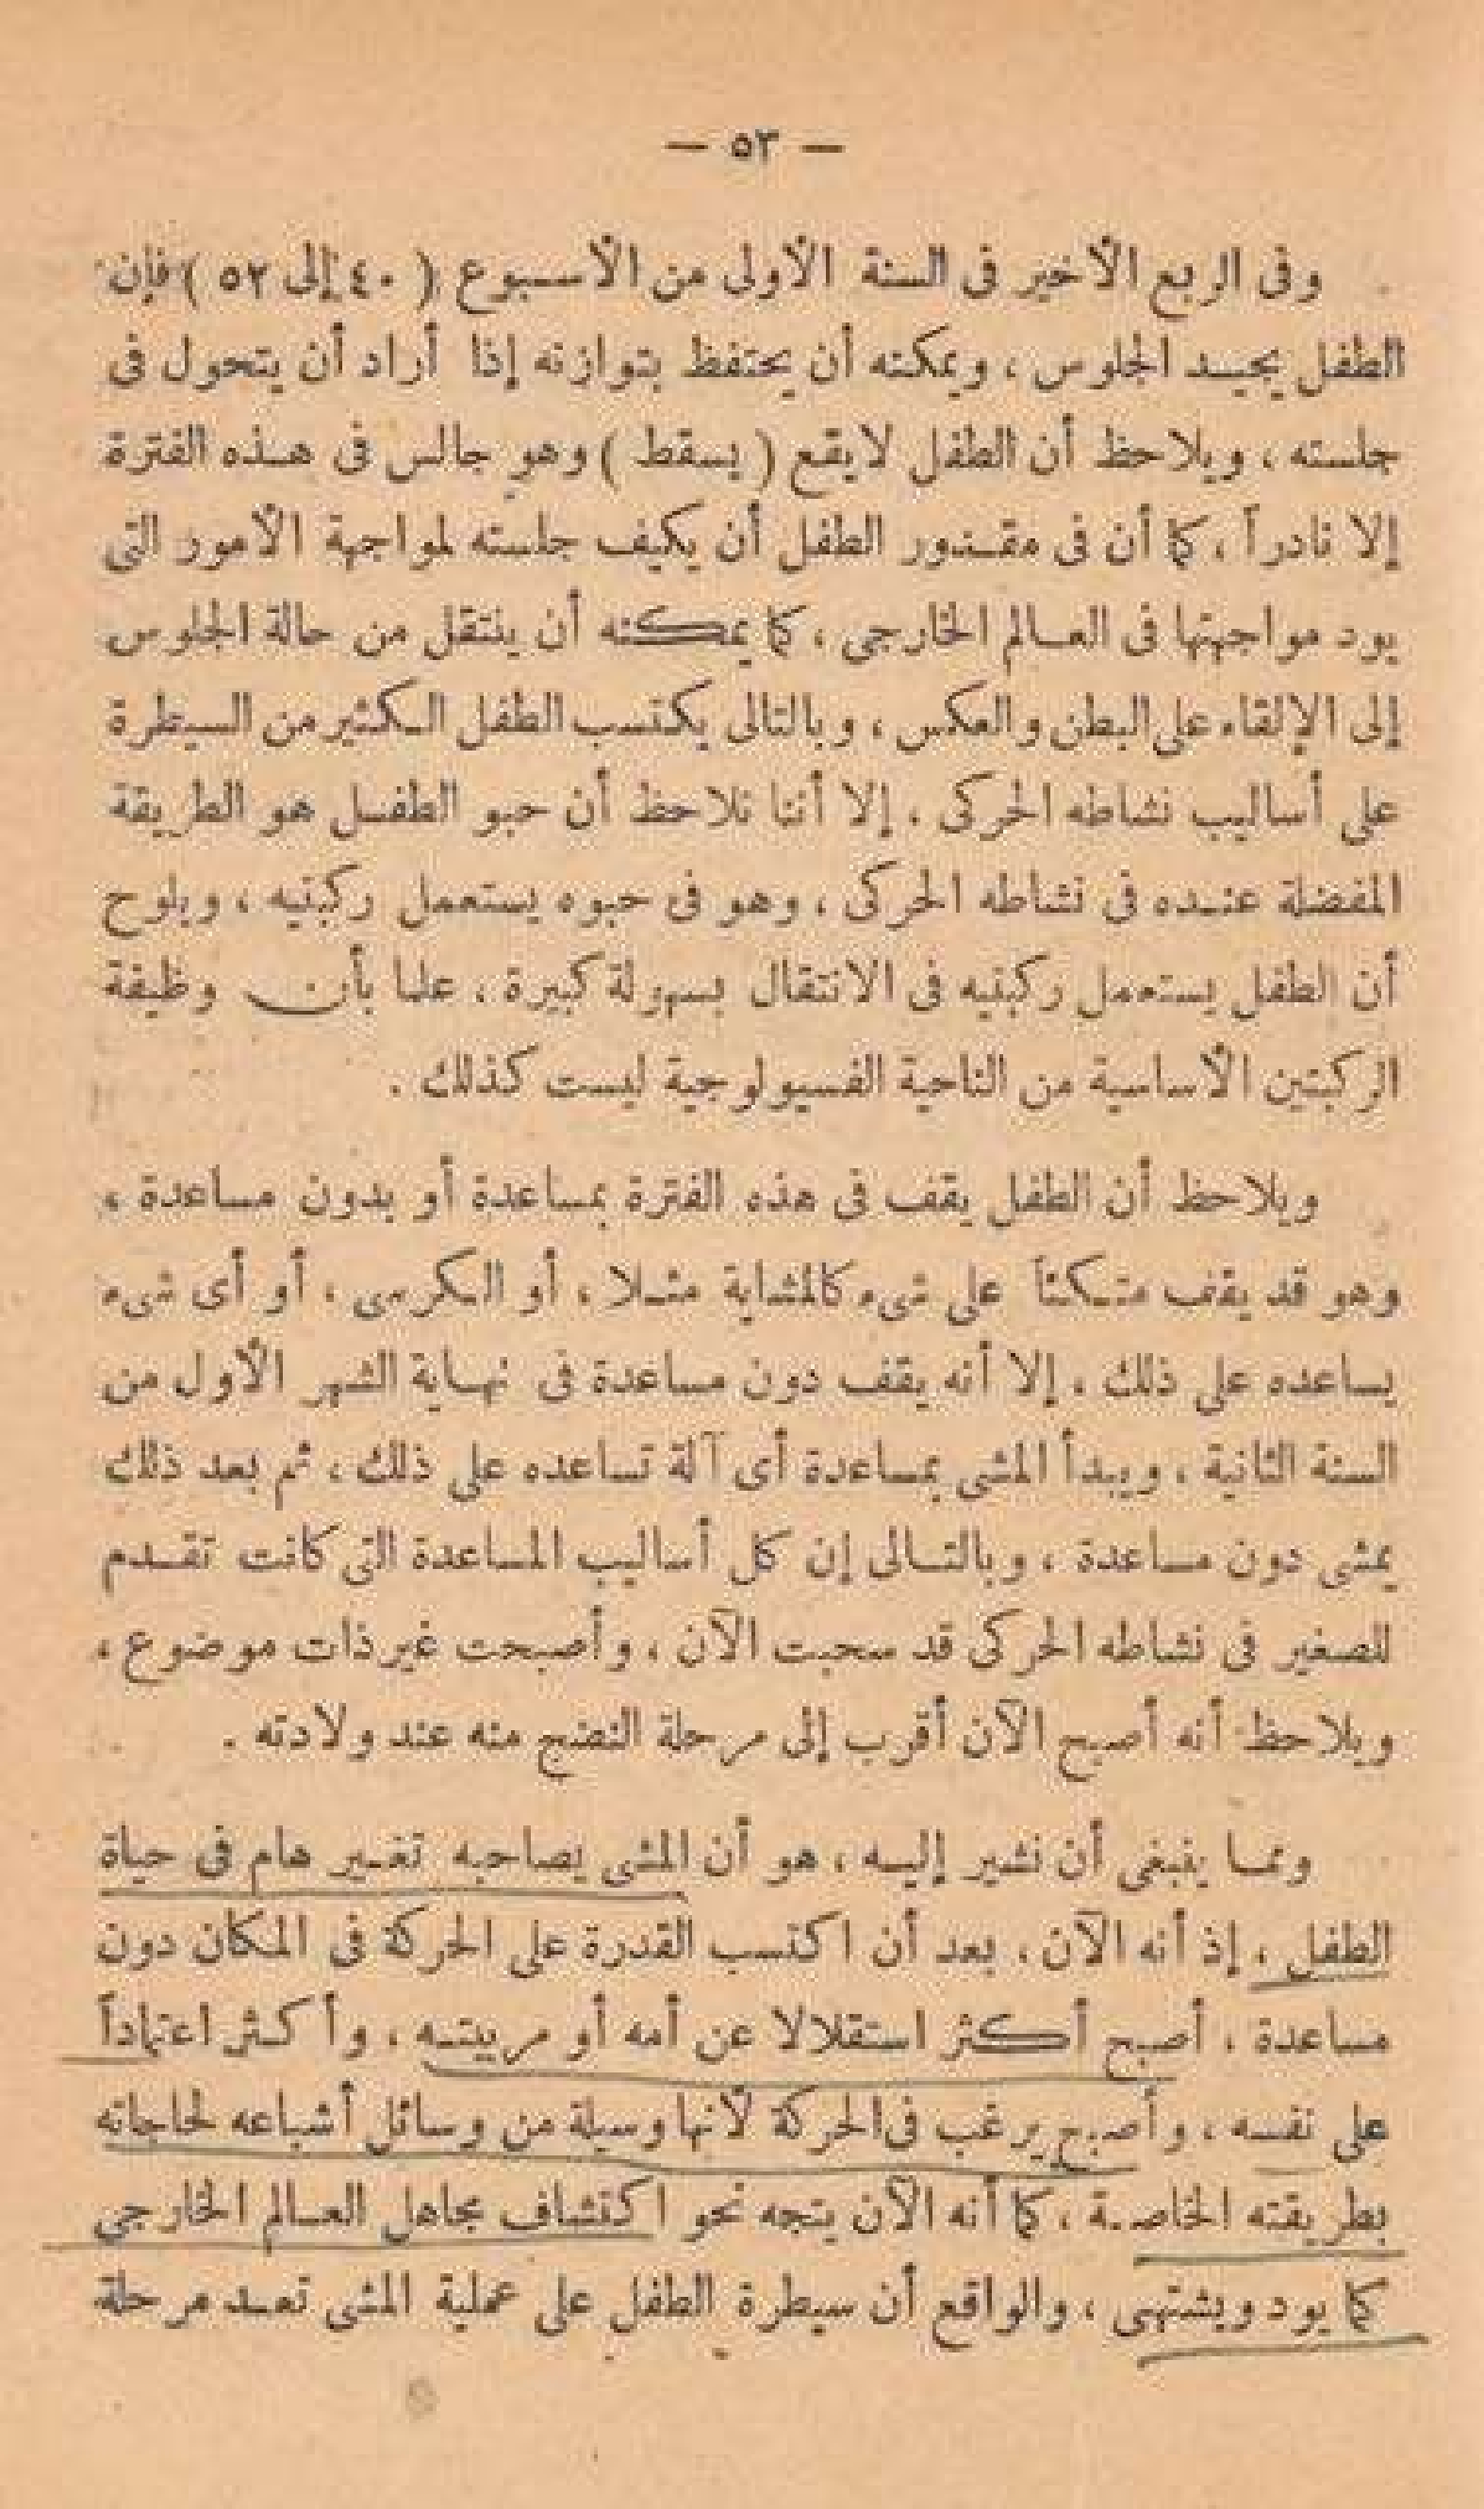 — ٥٣ —
وفى الربع الأخير فى السنة الأولى من الأسبوع ( ٤٠ إلى ٥٢ ) فإن
الطفل يجيد الجلوس ، ويمكنه أن يحتفظ بتوازنه إذا أراد أن يتحول فى
جلسته ، ويلاحظ أن الطفل لا يقع ( يسقط ) وهو جالس فى هذه الفترة
إلا نادراً ، كما أن فى مقدور الطفل أن يكيف جلسته لمواجهة الأمور التى
يود مواجهتها فى العالم الخارجى ، كما يمكنه أن ينتقل من حالة الجلوس
إلى الإلقاء على البطن والعكس ، وبالتالى يكتسب الطفل الكثير من السيطرة
على أساليب نشاطه الحركى ، إلا أننا نلاحظ أن حبو الطفل هو الطريقة
المفضلة عنده فى نشاطه الحركى ، وهو فى حبوه يستعمل ركبتيه ، ويلوح
أن الطفل يستعمل ركبتيه فى الانتقال بسهولة كبيرة ، علما بأن وظيفة
الركبتين الأساسية من الناحية الفسيولوجية ليست كذلك .
ويلاحظ أن الطفل يقف فى هذه الفترة بمساعدة أو بدون مساعدة ،
وهو قد يقف متكئاً على شىء كالمشاية مثلا ، أو الكرسى ، أو أى شىء
يساعده على ذلك ، إلا أنه يقف دون مساعدة فى نهاية الشهر الأول من
السنة الثانية ، ويبدأ المشى بمساعدة أى آلة تساعده على ذلك ، ثم بعد ذلك
يمشى دون مساعدة ، وبالتالى إن كل أساليب المساعدة التى كانت تقدم
للصغير فى نشاطه الحركى قد سحبت الآن ، وأصبحت غير ذات موضوع ،
ويلاحظ أنه أصبح الآن أقرب إلى مرحلة النضج منه عند ولادته .
ومما ينبغى أن نشير إليه ، هو أن المشى يصاحبه تغير هام فى حياة
الطفل ، إذ أنه الآن ، بعد أن اكتسب القدرة على الحركة فى المكان دون
مساعدة ، أصبح أكثر استقلالا عن أمه أو مربيته ، وأكثر اعتماداً
على نفسه ، وأصبح يرغب فى الحركة لأنها وسيلة من وسائل أشباعه لحاجاته
بطريقته الخاصة ، كما أنه الآن يتجه نحو اكتشاف مجاهل العالم الخارجى
كما يود ويشتهى ، والواقع أن سيطرة الطفل على عملية المشى تعد مرحلة